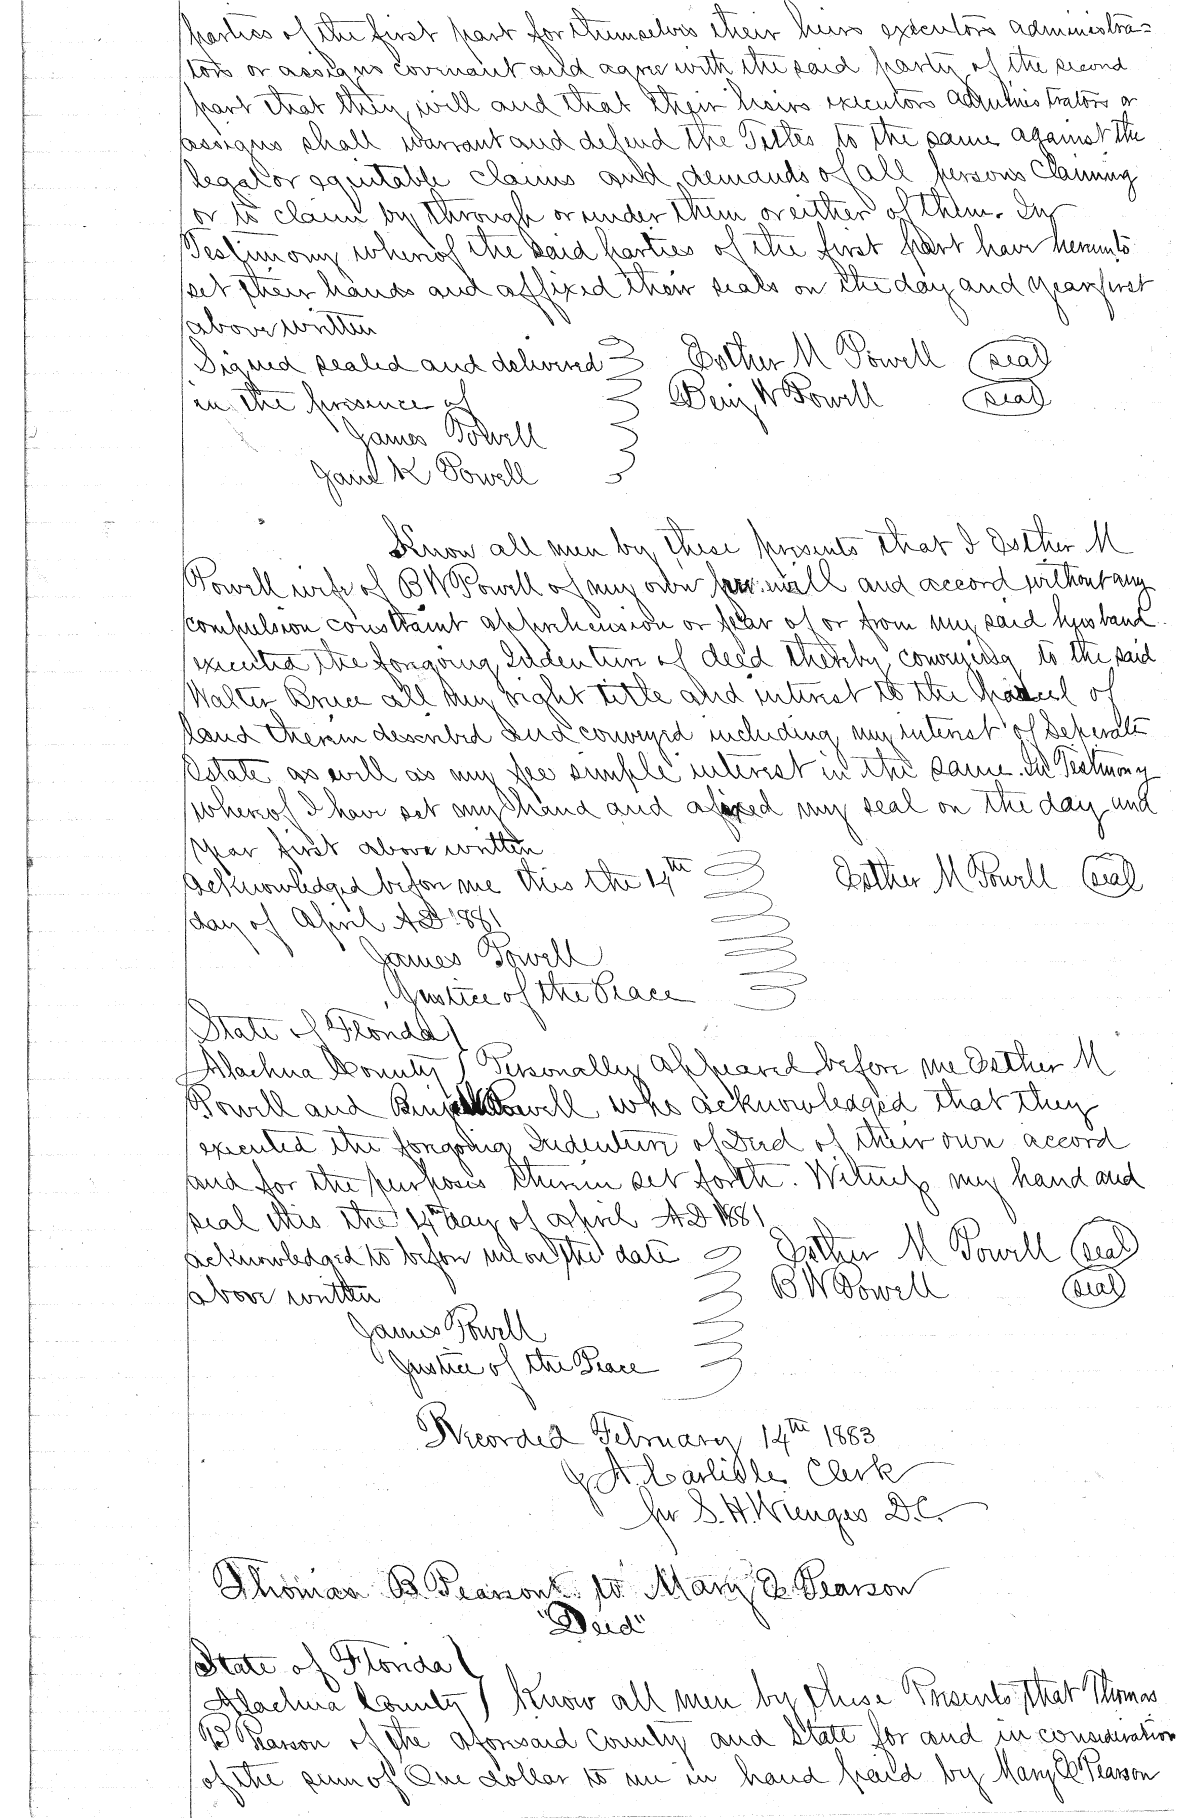 parties of the first part for themselves their heirs executors administra=
tors or assigns covenant and agree with the said party of the second
part that they will and that their heirs executors administrators or
assigns shall warrant and defend the Titles to the same against the
legal or equitable claims and demands of all persons Claiming
or to claim by through or under them or either of them. In
Testimony whereof the said parties of the first part have hereunto
set their hands and affixed their seals on the day and year first
above written
Signed sealed and delivered Esther M Powell (seal)
in the presence of Benj W Powell (seal)
James Powell
Jane K Powell
Know all men by these presents that I Esther M
Powell wife of B W Powell of my own free will and accord without any
compulsion constraint apprehension or fear of or from my said husband
executed the foregoing Indenture of deed thereby conveying to the said
Walter Bruce all my right title and interest to the parcel of
land therein described and conveyed including my interest of Seperate
Estate as well as my fee simple interest in the same. In Testimony
whereof I have set my hand and afixed my seal on the day and
year first above written
Acknowledged before me this the 14th Esther M Powell (seal)
day of April AD 1881
James Powell
Justice of the Peace
State of Florida
Alachua County Personally appeared before me Esther M
Powell and Benj W Powell who acknowledged that they
executed the foregoing Indenture of Deed of their own accord
and for the purposes therein set forth. Witness my hand and
seal this the 14th day of April AD 1881
acknowledged to before me on the date Esther M Powell (seal)
above written B W Powell (seal)
James Powell
Justice of the Peace
Recorded February 14th 1883
J A Carlisle Clerk
per S. H. Wienges D.C.
Thomas B Pearson to Mary E Pearson
"Deed"
State of Florida
Alachua County Know all men by these Presents that Thomas
B Pearson of the aforesaid County and State for and in consideration
of the sum of One dollar to me in hand paid by Mary E Pearson